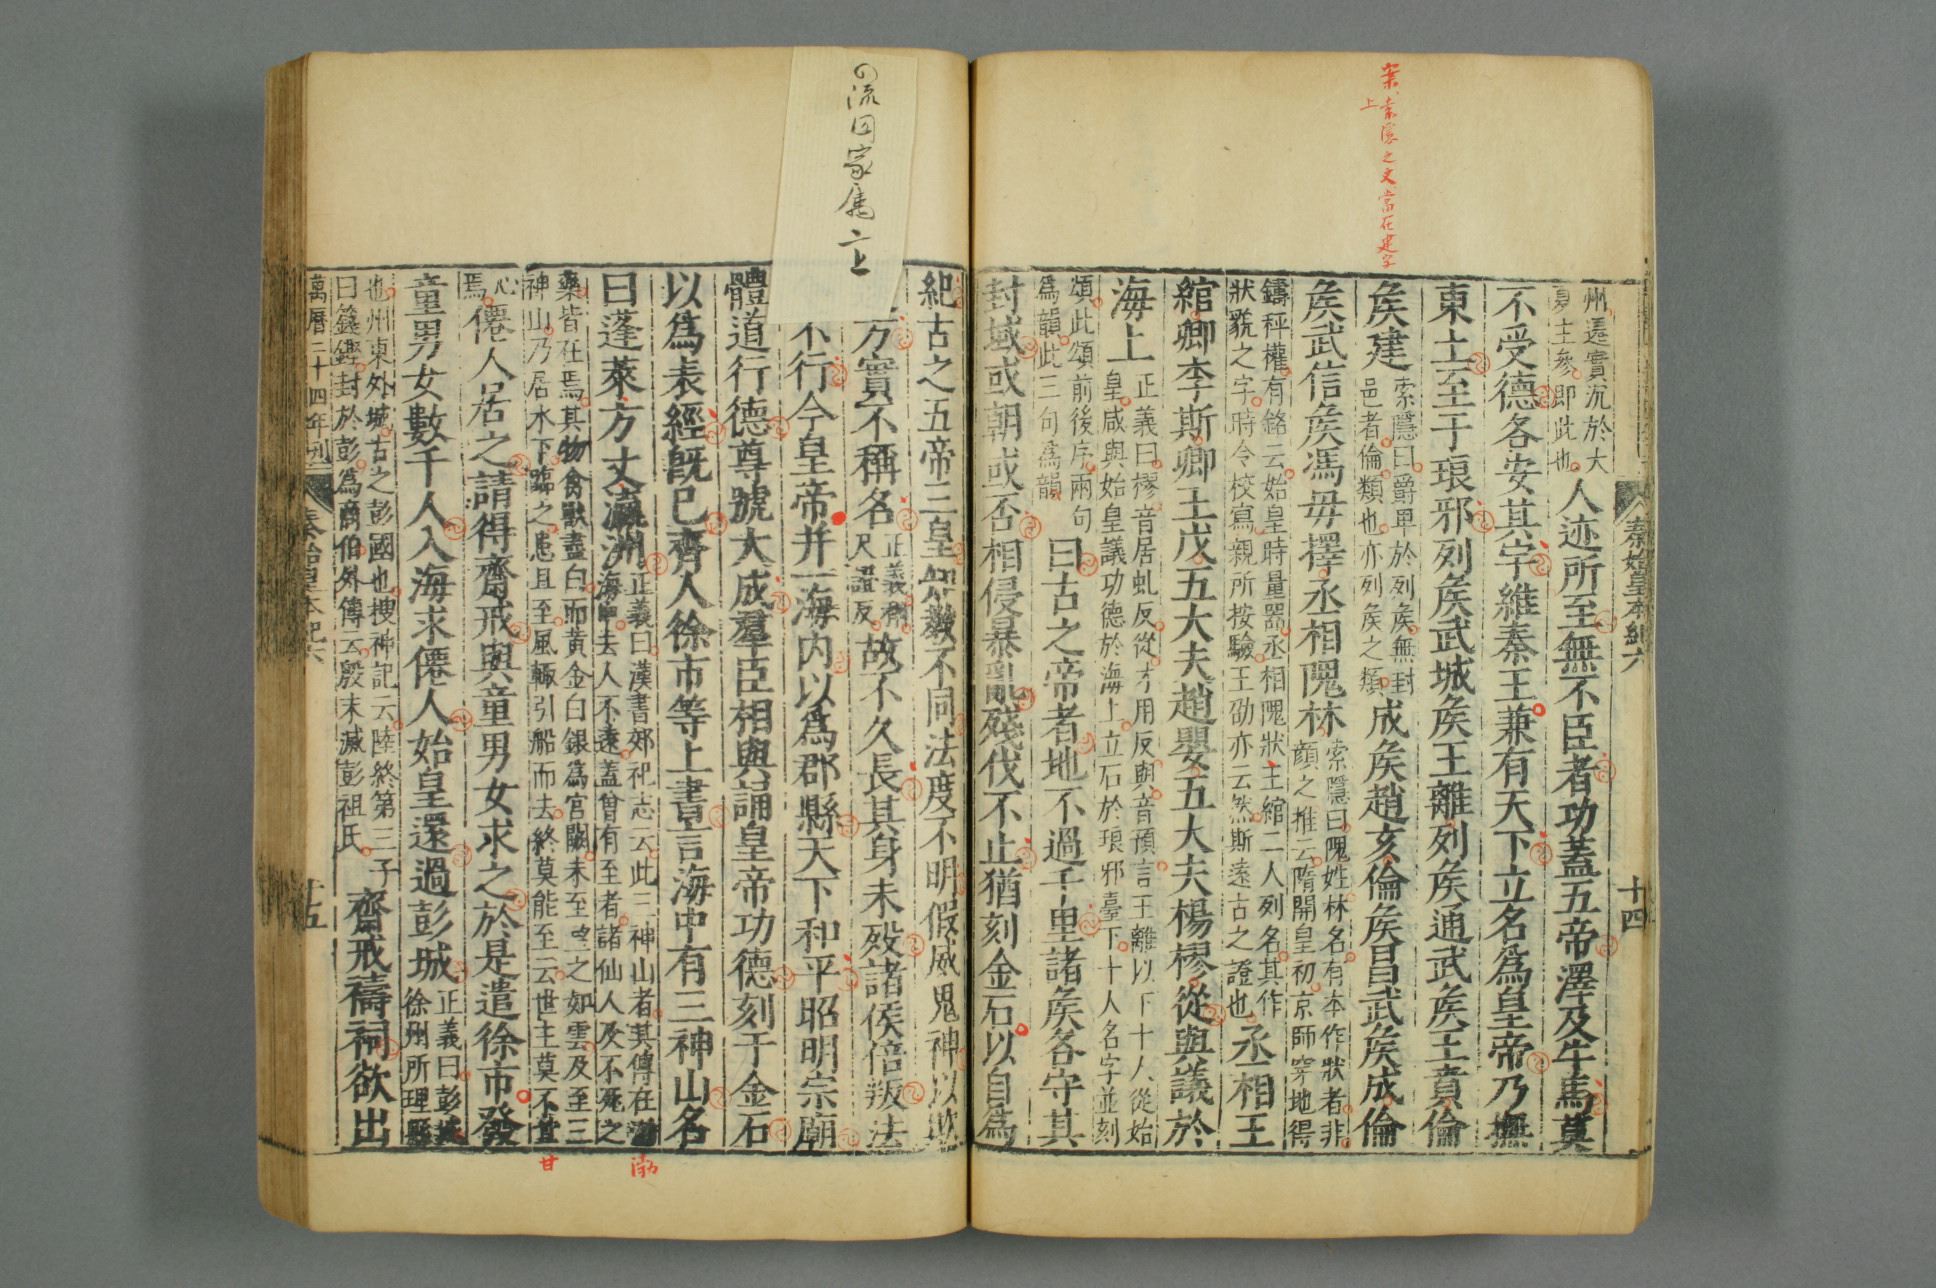 案索隱之文當在建字
上
秦始皇本紀六
十四
州遷實沉於大
夏主參即此也
人迹所至無不臣者功蓋五帝澤及牛馬莫
不受德各安其宇維秦王兼有天下立名爲皇帝乃撫
東土至于琅邪列矦武城矦王離列矦通武矦王賁倫
矦建
索隱曰爵卑於列矦無封
邑者倫類也亦列矦之類
成矦趙亥倫矦昌武矦成倫
矦武信矦馮毋擇丞相隗林
索隱曰隗姓林名有本作狀者非
顔之推云隋開皇初京師穿地得
鑄秤權有銘云始皇時量器丞相隗狀王綰二人列名其作
狀貌之字時令校寫親所按驗王劭亦云然斯遠古之證也
丞相王
綰卿李斯卿王戊五大夫趙嬰五大夫楊樛從與議於
海上
正義曰樛音居虬反從才用反與音預言王離以下十人從始
皇咸與始皇議功德於海上立石於琅邪臺下十人名字並刻
頌此頌前後序兩句
爲韻此三句爲韻
曰古之帝者地不過千里諸矦各守其
封域或朝或否相侵暴亂殘伐不止猶刻金石以自爲
の流因家焉 六上
紀古之五帝三皇知教不同法度不明假威鬼神以欺
方實不稱名
正義稱
尺證反
故不久長其身未歿諸侯倍叛法
不行今皇帝并一海内以爲郡縣天下和平昭明宗廟
體道行德尊號大成羣臣相與誦皇帝功德刻于金石
以爲表經旣已齊人徐市等上書言海中有三神山名
曰蓬萊方丈瀛洲
正義曰漢書郊祀志云此三神山者其傳在渤
海中去人不遠蓋曾有至者諸仙人及不死之
藥皆在焉其物禽獸盡白而黄金白銀爲宮闕未至望之如雲及至三
神山乃居水下臨之患且至風輒引船而去終莫能至云世主莫不甘
渤
甘
心
焉
僊人居之請得齋戒與童男女求之於是遣徐市發
童男女數千人入海求僊人始皇還過彭城
正義曰彭城
徐州所理縣
也州東外城古之彭國也搜神記云陸終第三子
曰籛鏗封於彭爲商伯外傳云殷末滅彭祖氏
齋戒禱祠欲出
萬曆二十四年刊
秦始皇本紀六
十五